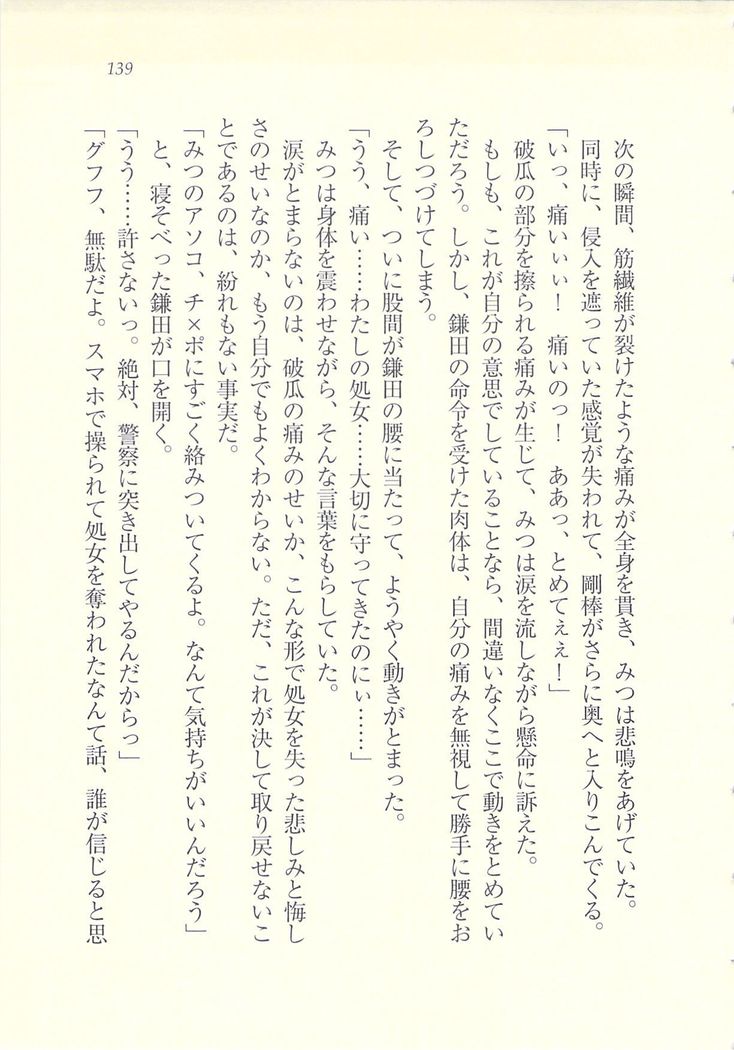 139
次の瞬間、筋繊維が裂けたような痛みが全身を貫き、みつは悲鳴をあげていた。
同時に、侵入を遮っていた感覚が失われて、剛棒がさらに奥へと入りこんでくる。
「いっ、痛いぃぃ！　痛いのっ！　ああっ、とめてぇぇ！」
破瓜の部分を擦られる痛みが生じて、みつは涙を流しながら懸命に訴えた。
もしも、これが自分の意思でしていることなら、間違いなくここで動きをとめてい
ただろう。しかし、鎌田の命令を受けた肉体は、自分の痛みを無視して勝手に腰をお
ろしつづけてしまう。
そして、ついに股間が鎌田の腰に当たって、ようやく動きがとまった。
「うう、痛い……わたしの処女……大切に守ってきたのにぃ……」
みつは身体を震わせながら、そんな言葉をもらしていた。
涙がとまらないのは、破瓜の痛みのせいか、こんな形で処女を失った悲しみと悔し
さのせいなのか、もう自分でもよくわからない。ただ、これが決して取り戻せないこ
とであるのは、紛れもない事実だ。
「みつのアソコ、チ×ポにすごく絡みついてくるよ。なんて気持ちがいいんだろう」
と、寝そべった鎌田が口を開く。
「うう……許さないっ。絶対、警察に突き出してやるんだからっ」
「グフフ、無駄だよ。スマホで操られて処女を奪われたなんて話、誰が信じると思